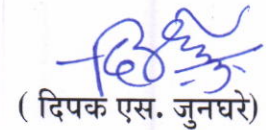 ( दिपक एस. जुनघरे)